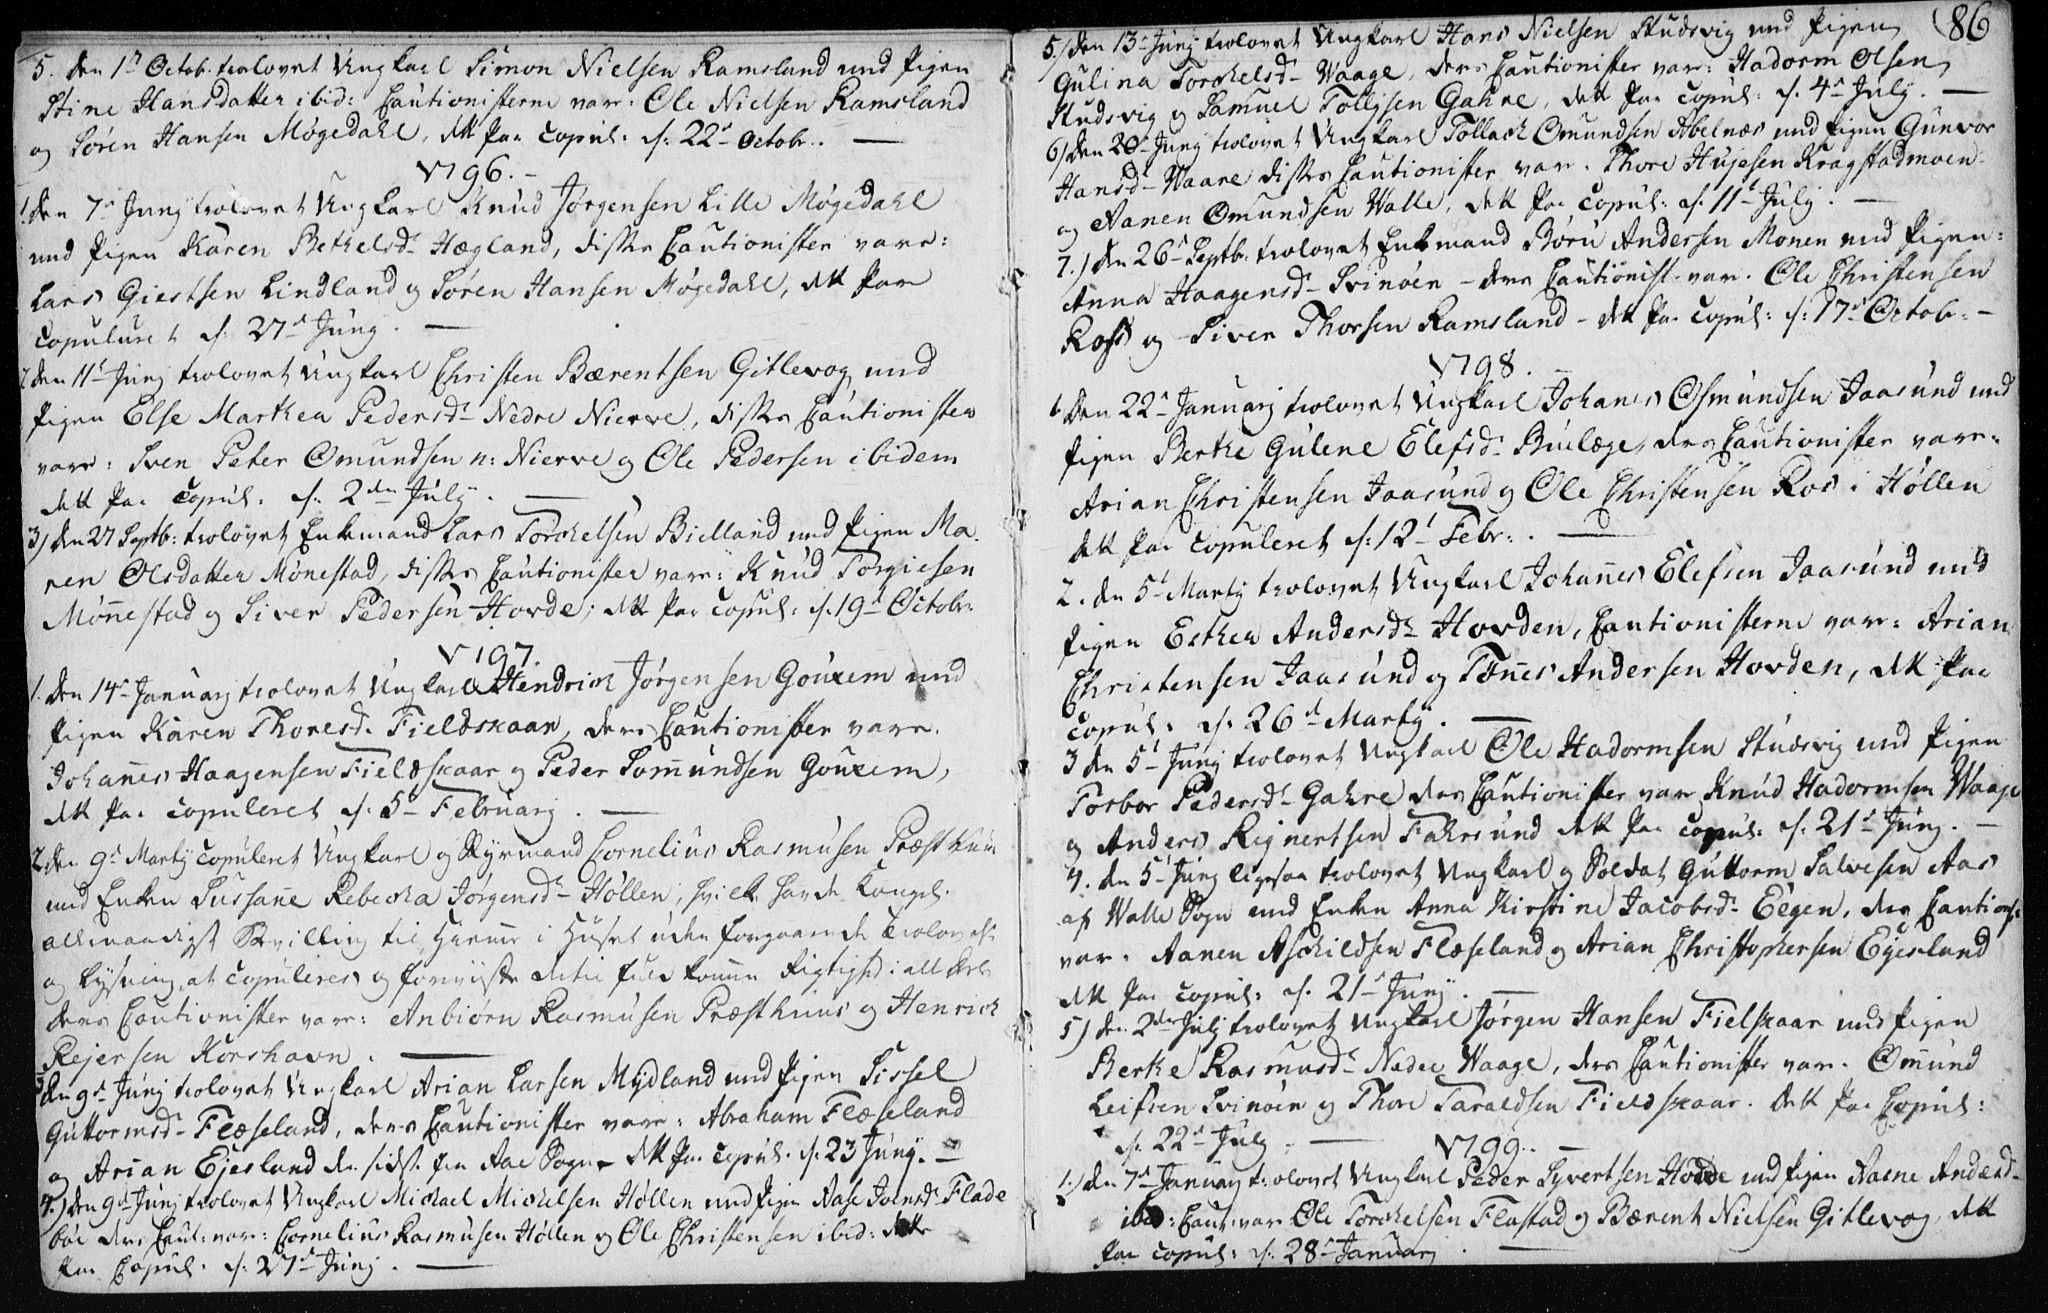 5. den 1d Octob. trolovet Ungkarl Simon Nielsen Ramsland med Pigen
Stine Hansdatter ibid: Cautionisterne var: Ole Nielsen Ramsland
og Sören Hansen Mögedahl, dette Par copul: d: 22d Octobr. —
1796. –
1. den 7d Junij trolovet Ungkarl Knud Jörgensen Lille Mögedahl
med Pigen Karen Bethelsd. Hægland, disses Cautionister vare:
Lars Giertsen Lindland og Sören Hansen Mögedahl, dette Par
copuleret d: 27d Junij. —
2 den 11d Junij trolovet Ungkarl Christen Bærentsen Gitlevog med
Pigen Else Marthea Pedersd. Nedre Nierve, disses Cautionister
vare: Sven Peter Omundsen n: Nierve og Ole Pedersen ibidem
dette Par copul: d. 2den Julij. —
3) den 27 Septb: trolovet Enkemand Lars Torchelsen Bielland med Pigen Ma-
ren Olsdatter Mönestad, disses Cautionister vare: Knud Torgiesen
Mönnestad og Siver Pedersen Hovde; dette Par copul: d. 19d Octobr.
1797.
1. den 14d Januarij trolovet Ungkarl Hendrich Jörgensen Gouxem med
Pigen Karen Thoresd. Fieldskaar, deres Cautionister vare.
Johannes Haagensen Fieldskaar og Peder Lommundsen Gouxem,
dette Par copuleret d. 5d Februarij. —
2 den 9d Martij copuleret Ungkarl og Styrmand Cornelius Rasmusen Præsthuus
med Enken Sussane Rebecka Jörgensd. Höllen, hvilke havde Kongel.
allernaadigst Bevilling til hiemme i Huset uden forgaaende Trolovelse
og Lysning at copuleres og foreviiste dertil fuldkomne Rigtighed i alle Dele
deres Cautionister vare: Anbiörn Rasmusen Præsthuus og Henrich
Rejersen Korshavn. —
3. den 9d Junij trolovet Ungkarl Arian Larsen Mydland med Pigen Sissel
Guttormsd. Flæseland, deres Cautionister vare: Abraham Flæseland
og Arian Ejesland den sidste fra Aae Sogn – dette Par copul. d. 23 Junij. —
4.) den 9d Junij trolovet Ungkarl Michael Michelsen Höllen med Pigen Aase Joensd. Flade
böe deres Caut: var: Cornelius Rasmusen Höllen og Ole Christensen ibid: dette
Par Copul. d. 27d Junij. —
86
5.) den 13d Junij trolovet Ungkarl Hans Nielsen Studsvig med Pigen
Gulina Torchelsd. Waage, deres Cautionister var: Hadorm Olsen
Studsvig og Samuel Tollefsen Gahre, dette Par copul: d. 4d Julij. —
6) den 20d Junij trolovet Ungkarl Tollach Omundsen Abelnæs med Pigen Gunvor
Hansd. Waare disses Cautionister var. Thore Hujesen Kragstadmoen
og Aanen Omundsen Walle, dette Par copul: d. 11d Julij. —
7.) den 26d Septb. trolovet Enkemand Börü Andersen Monen med Pigen:
Anna Haagensd. Svinöen – deres Cautionist. var. Ole Christensen
Ross og Siver Thorsen Ramsland – dette Par copul: d: 17d Octob: –
1798.
1. den 22d Januarij trolovet Ungkarl Johanes Osmundsen Jaasund med
Pigen Berthe Gulene Elefsd. Buulæge, deres Cautionister vare:
Arian Christensen Jaasund og Ole Christensen Ros i Höllen
dette Par copuleret d: 12d Febr. —
2. den 5d Martij trolovet Ungkarl Johannes Elefsen Jaasund med
Pigen Esther Andersd. Hovden, Cautionisterne vare: Arian
Christensen Jaasund og Tönnes Andersen Hovden, dette Par
copul: d. 26d Martij. —
3 den 5d Junij trolovet Ungkarl Ole Hadormsen Studsvig med Pigen
Torbor Pedersd. Gahre deres Cautionister var Knud Hadormsen Waage
og Anders Reignertsen Fahrsund dette Par copul: d: 21d Junij. —
4. den 5d Junij ligesaa trolovet Ungkarl og Soldat Guttorm Salvesen Aas
af Walle Sogn med Enken Anna Kirstine Jacobsd. Eegen, deres Cautionist:
var: Aanen Aschildsen Flæseland og Arian Christophersen Ejesland
dette Par copul: d. 21d Junij. —
5) den 2den Julij trolovet Ungkarl Jörgen Hansen Fielskaar med Pigen
Berthe Rasmusd. Nedre Waage, deres Cautionister var. Ommund
Leifsen Svinöen og Thore Taraldsen Fieldskaar. dette Par Copul:
d. 22d Julij. —
1799. —
1.) den 7d Januarij trolovet Ungkarl Peder Syvertsen Hovde med Pigen Aasne Andersd.
ibid: Caut: var Ole Torchelsen Flastad og Bærent Nielsen Gitlevog, dette
Par copul: d. 28d Januarij. —